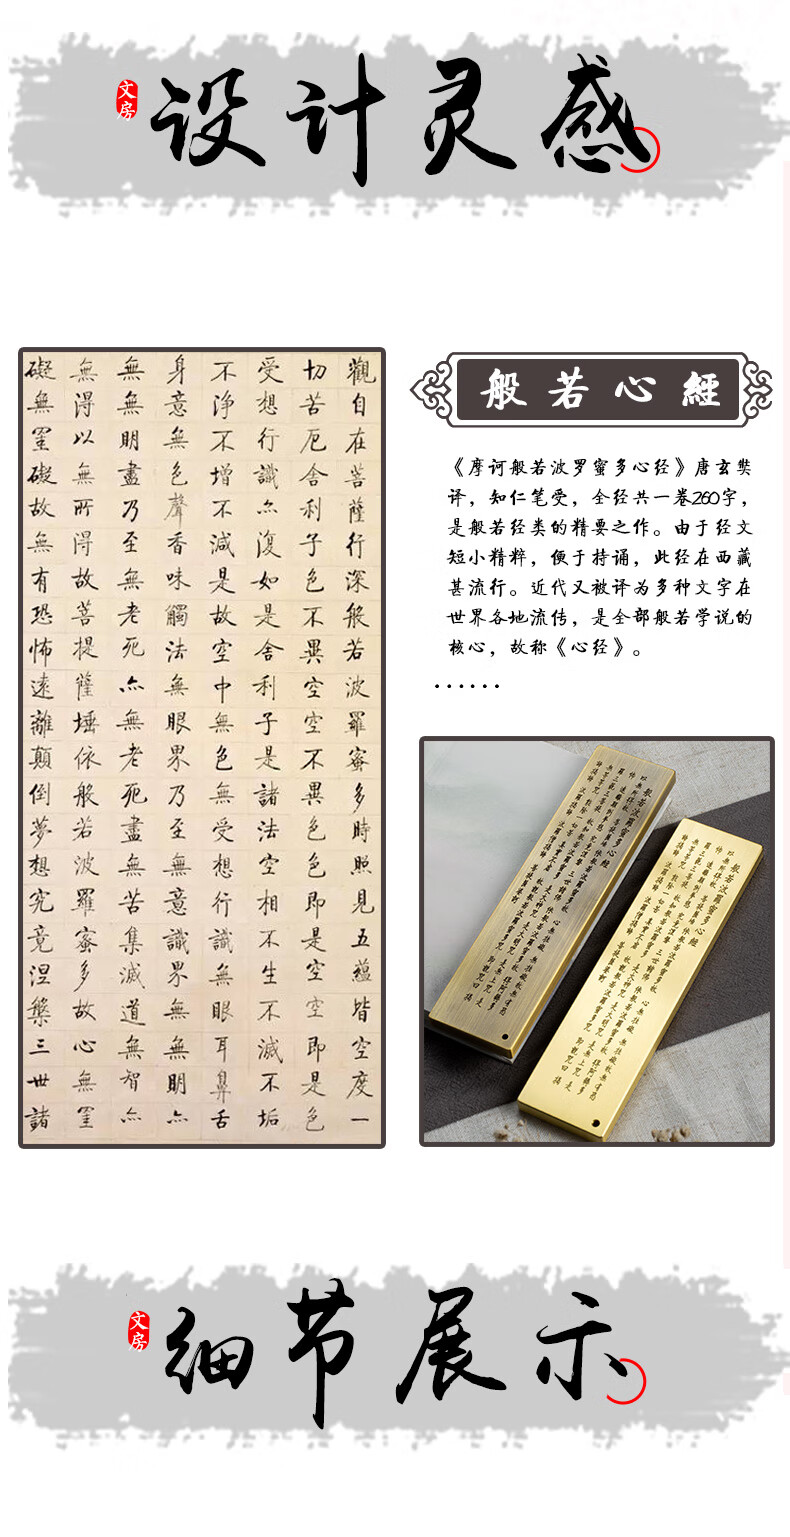 文房
设计灵感
觀自在菩薩行深般若波羅蜜多時照見五蘊皆空度一
切苦厄舍利子色不異空空不異色色即是空空即是色
受想行識亦復如是舍利子是諸法空相不生不滅不垢
不淨不增不減是故空中無色無受想行識無眼耳鼻舌
身意無色聲香味觸法無眼界乃至無意識界無無明亦
無無明盡乃至無老死亦無老死盡無苦集滅道無智亦
無得以無所得故菩提薩埵依般若波羅蜜多故心無罣
礙無罣礙故無有恐怖遠離顛倒夢想究竟涅槃三世諸
般若心經
《摩诃般若波罗蜜多心经》唐玄奘
译，知仁笔受，全经共一卷260字，
是般若经类的精要之作。由于经文
短小精粹，便于持诵，此经在西藏
甚流行。近代又被译为多种文字在
世界各地流传，是全部般若学说的
核心，故称《心经》。
······
般若波羅蜜多心經
般若波羅蜜多心經
文房
细节展示